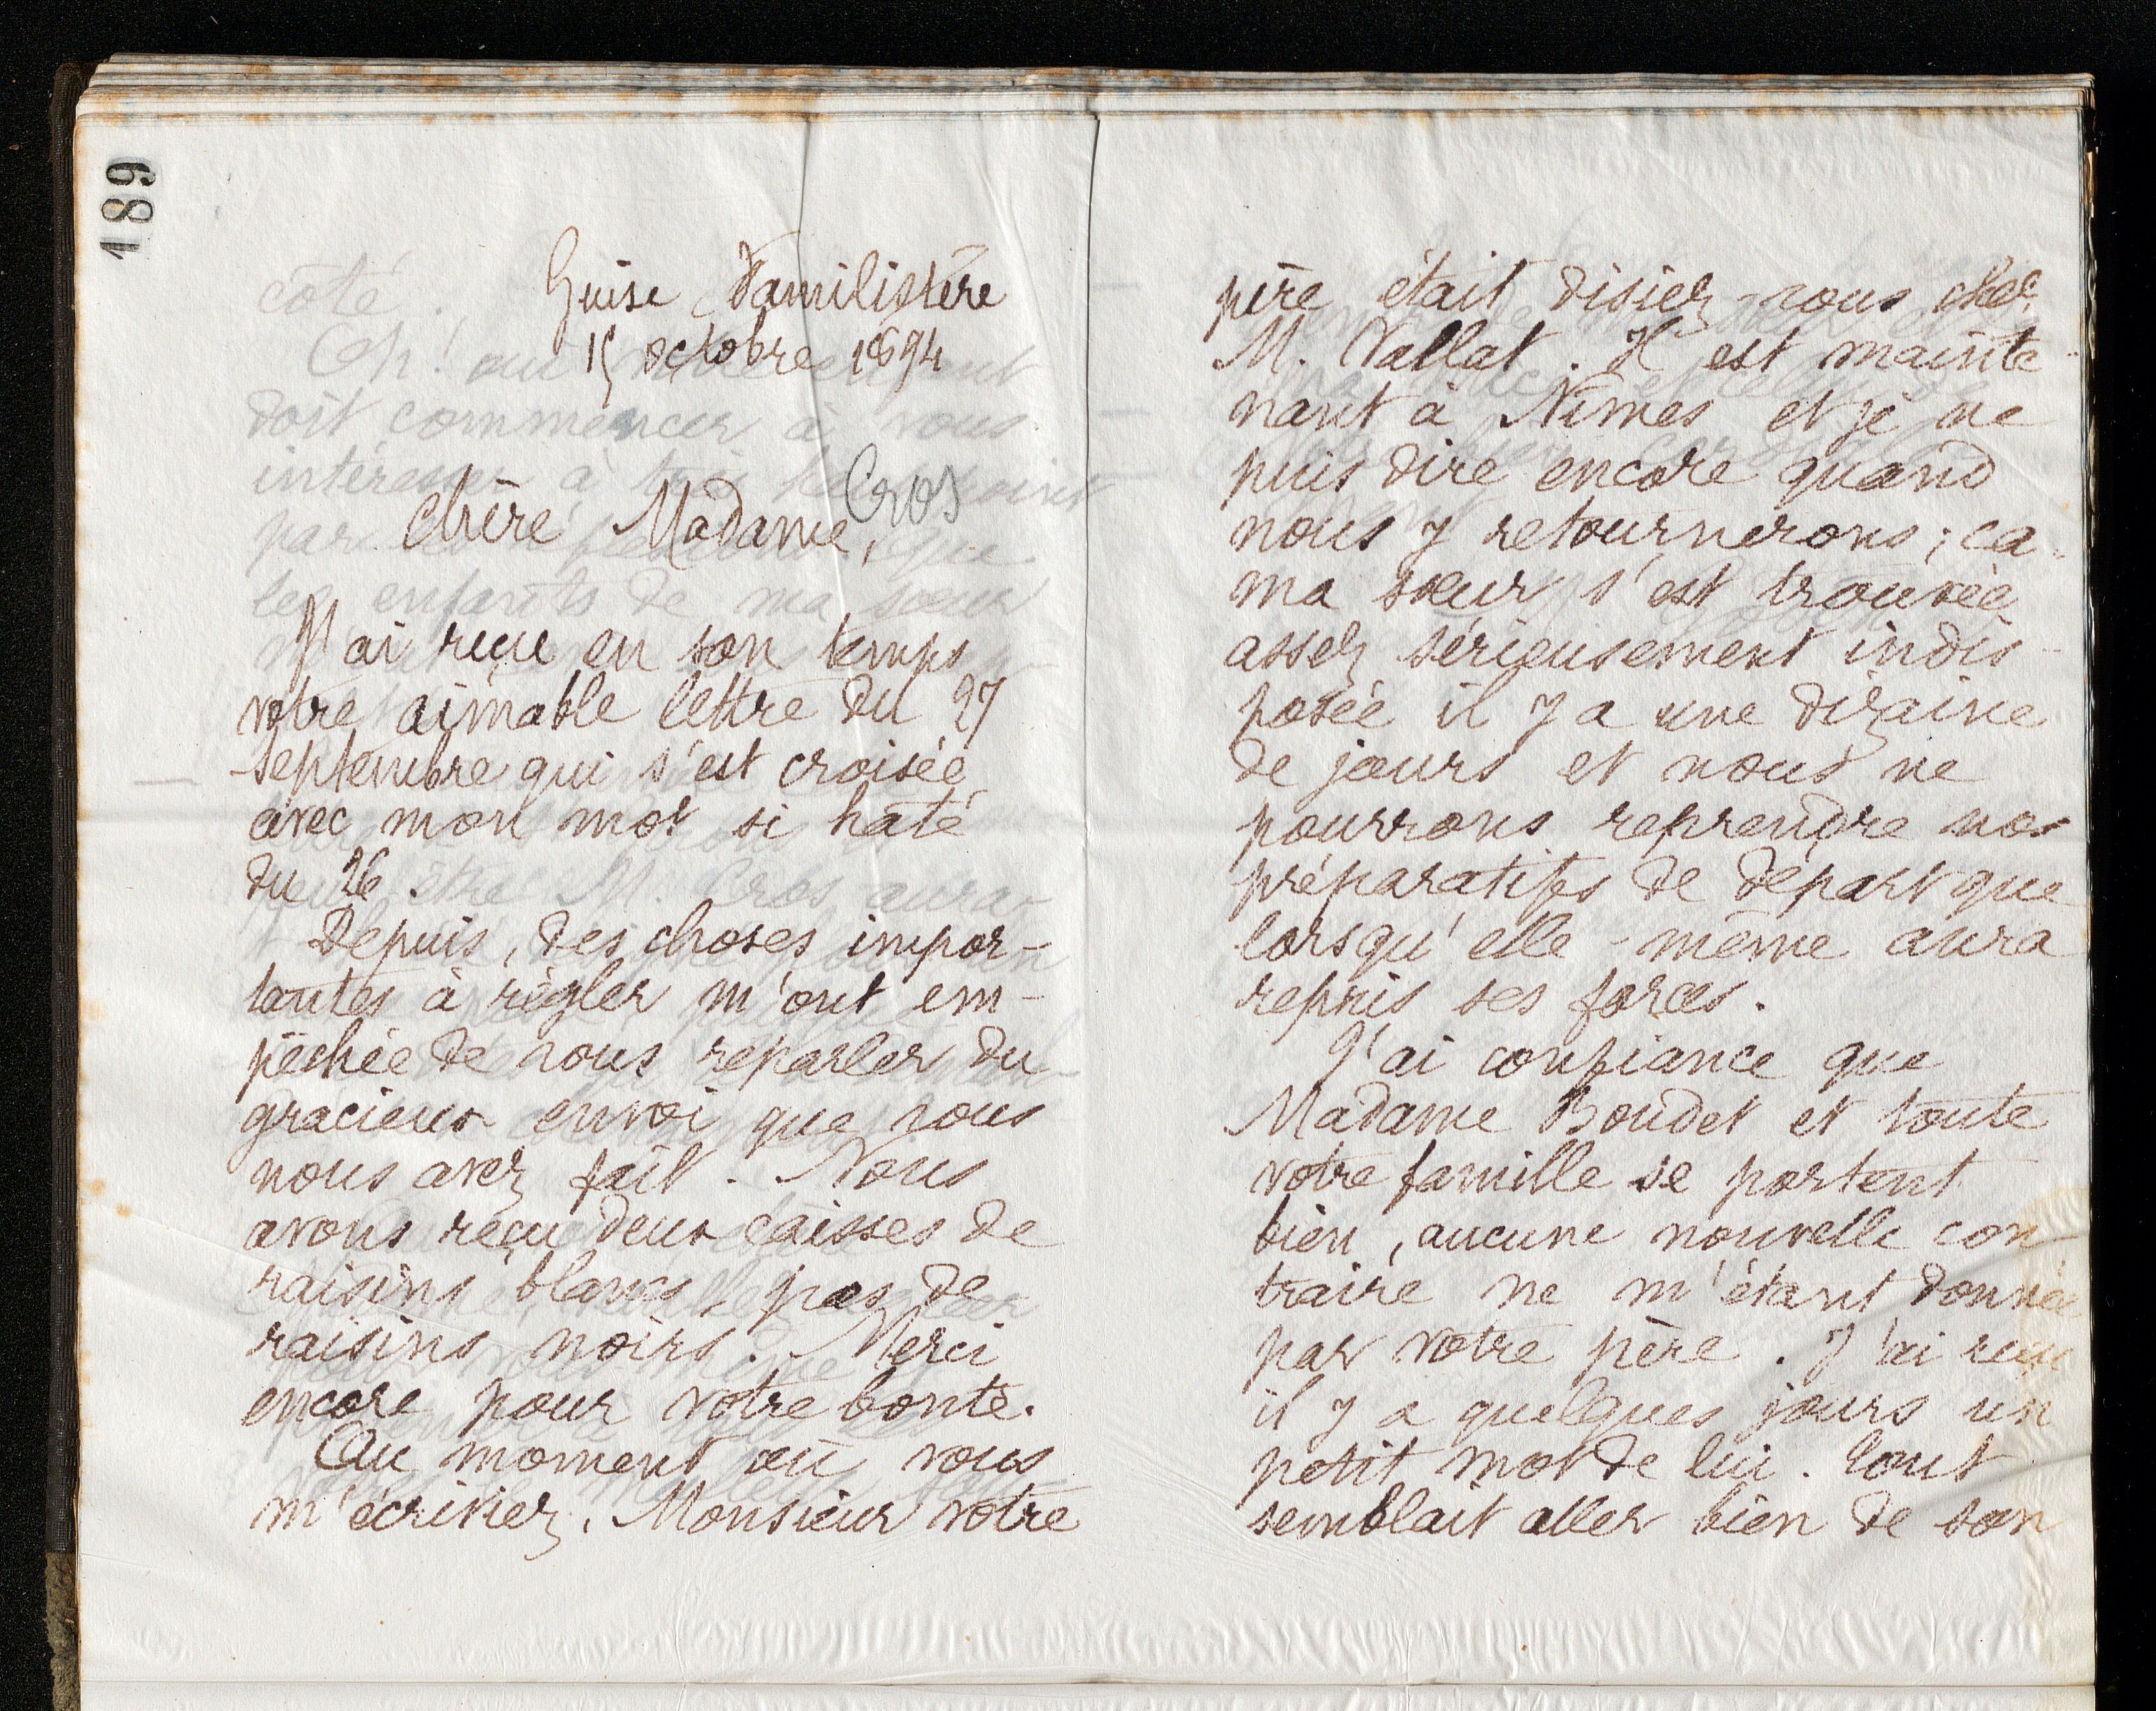 189
Guise Familistère
15 octobre 1894
Chère Madame, Cros
J'ai reçue en son temps
votre aimable lettre du 27
septembre qui s'est croisée
avec mon mot si hâté
du 26.
Depuis, des choses impor-
tantes à régler m'ont em-
pêchée de vous reparler du
gracieux envoi que vous
nous avez fait. Nous
avons reçu deux caisses de
raisins blancs, pas de
raisins noirs. Merci
encore pour votre bonté.
Au moment où vous
m'écriviez, Monsieur votre
père était disiez-vous chez
M. Vallat. Il est mainte-
nant à Nîmes et je ne
puis dire encore quand
nous y retournerons ; ca
ma sœur s'est trouvée
assez sérieusement indis-
posée il y a une dizaine
de jours et nous ne
pourrons reprendre nos
préparatifs de départ que
lorsqu'elle-même aura
repris ses forces.
J'ai confiance que
Madame Boudet et toute
votre famille se portent
bien, aucune nouvelle con-
traire ne m'étant donnée
par votre père. J'ai reçu
il y a quelques jours un
petit mot de lui. Tout
semblait aller bien de son